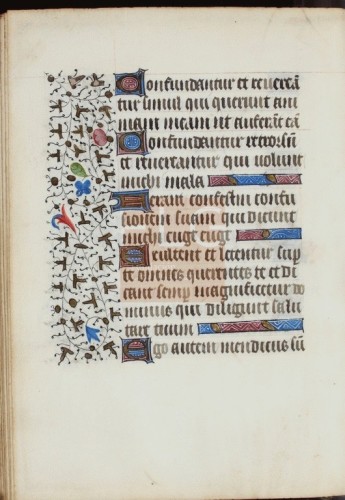 Confundantur et reuerea͂
tur simul qui querunt ani
mam meam vt auferat͂ ea͂
Confundantur retrorsu͂
et reuereantur qui volunt
michi mala
Ferant confestim confu
sionem suam qui dicunt
michi euge euge
Exultent et letentur sup͂
te omnes querentes te et di
cant semp͂ magnificetur do
minus qui diligunt salu
tare tuum
Ego autem mendicus su͂